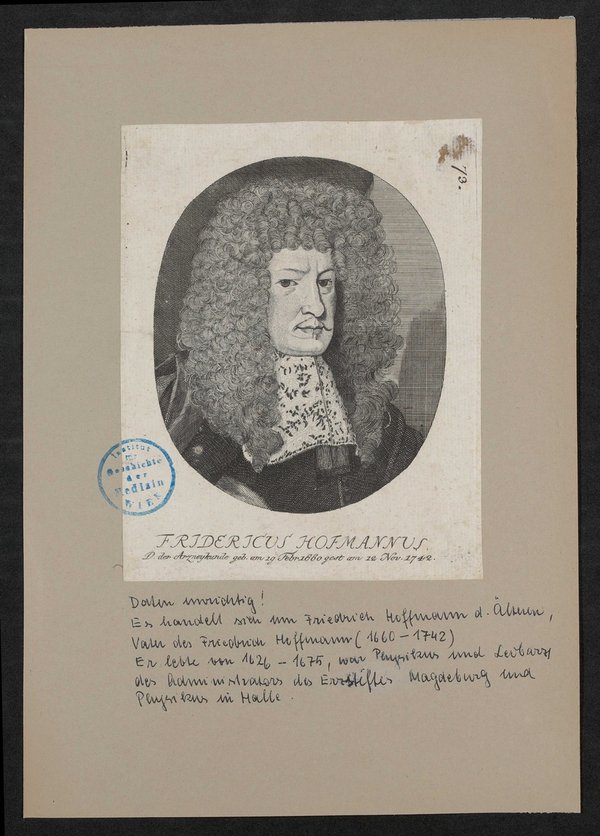 73.
Institut
für
Geschichte
der
Medizin
WIEN
FRIDERICUS HOFMANNUS.
D. der Arzneykunde geb. am 19 Febr. 1660 gest am 12 Nov. 1742.
Daten unrichtig!
Es handelt sich um Friedrich Hoffmann d. Älteren,
Vater des Friedrich Hoffmann (1660 – 1742)
Er lebte von 1626 – 1675, war Physikus und Leibarzt
des Administrators des Erzstiftes Magdeburg und
Physikus in Halle.